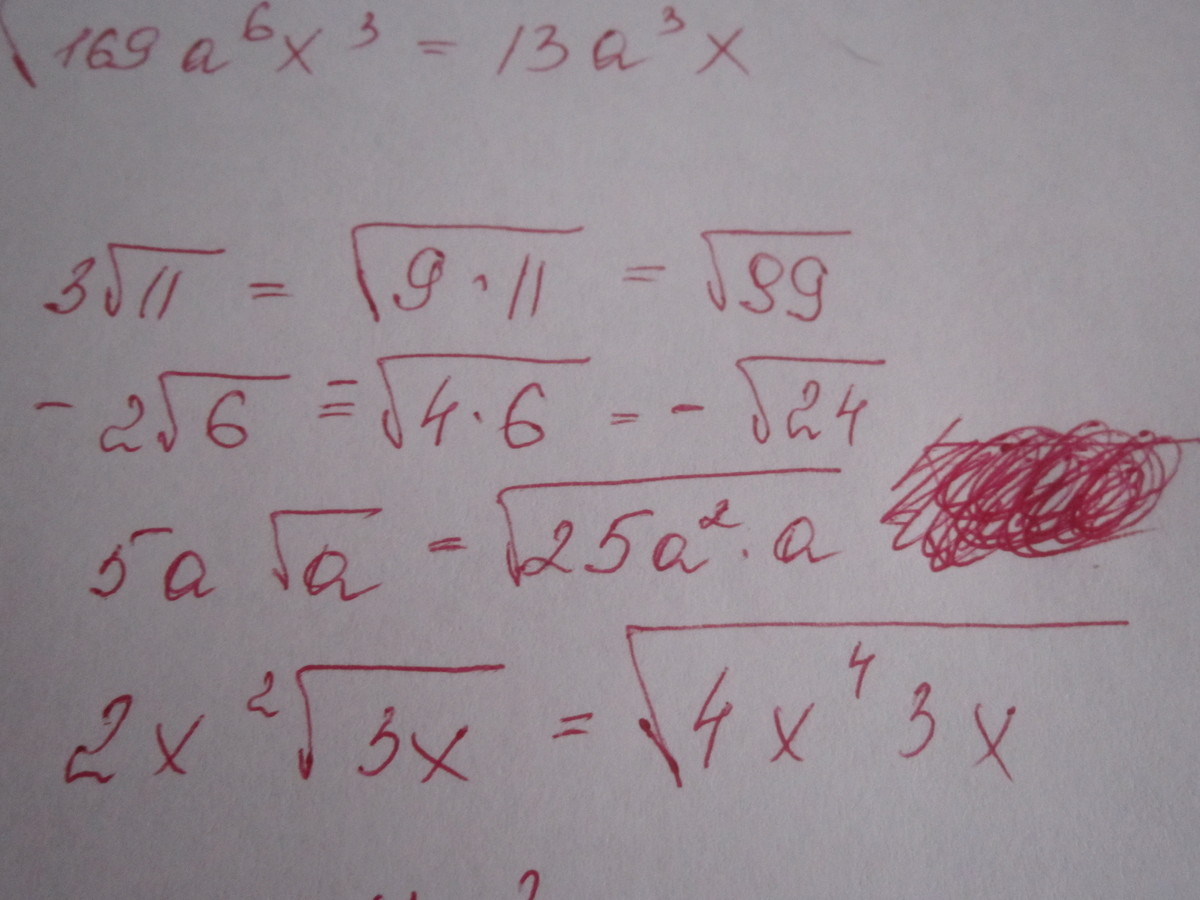 √169a⁶x³ = 13a³x
3√11 = √9·11 = √99
- 2√6 = -√4·6 = - √24
5a √a = √25a²·a
2x²√3x = √4x⁴3x